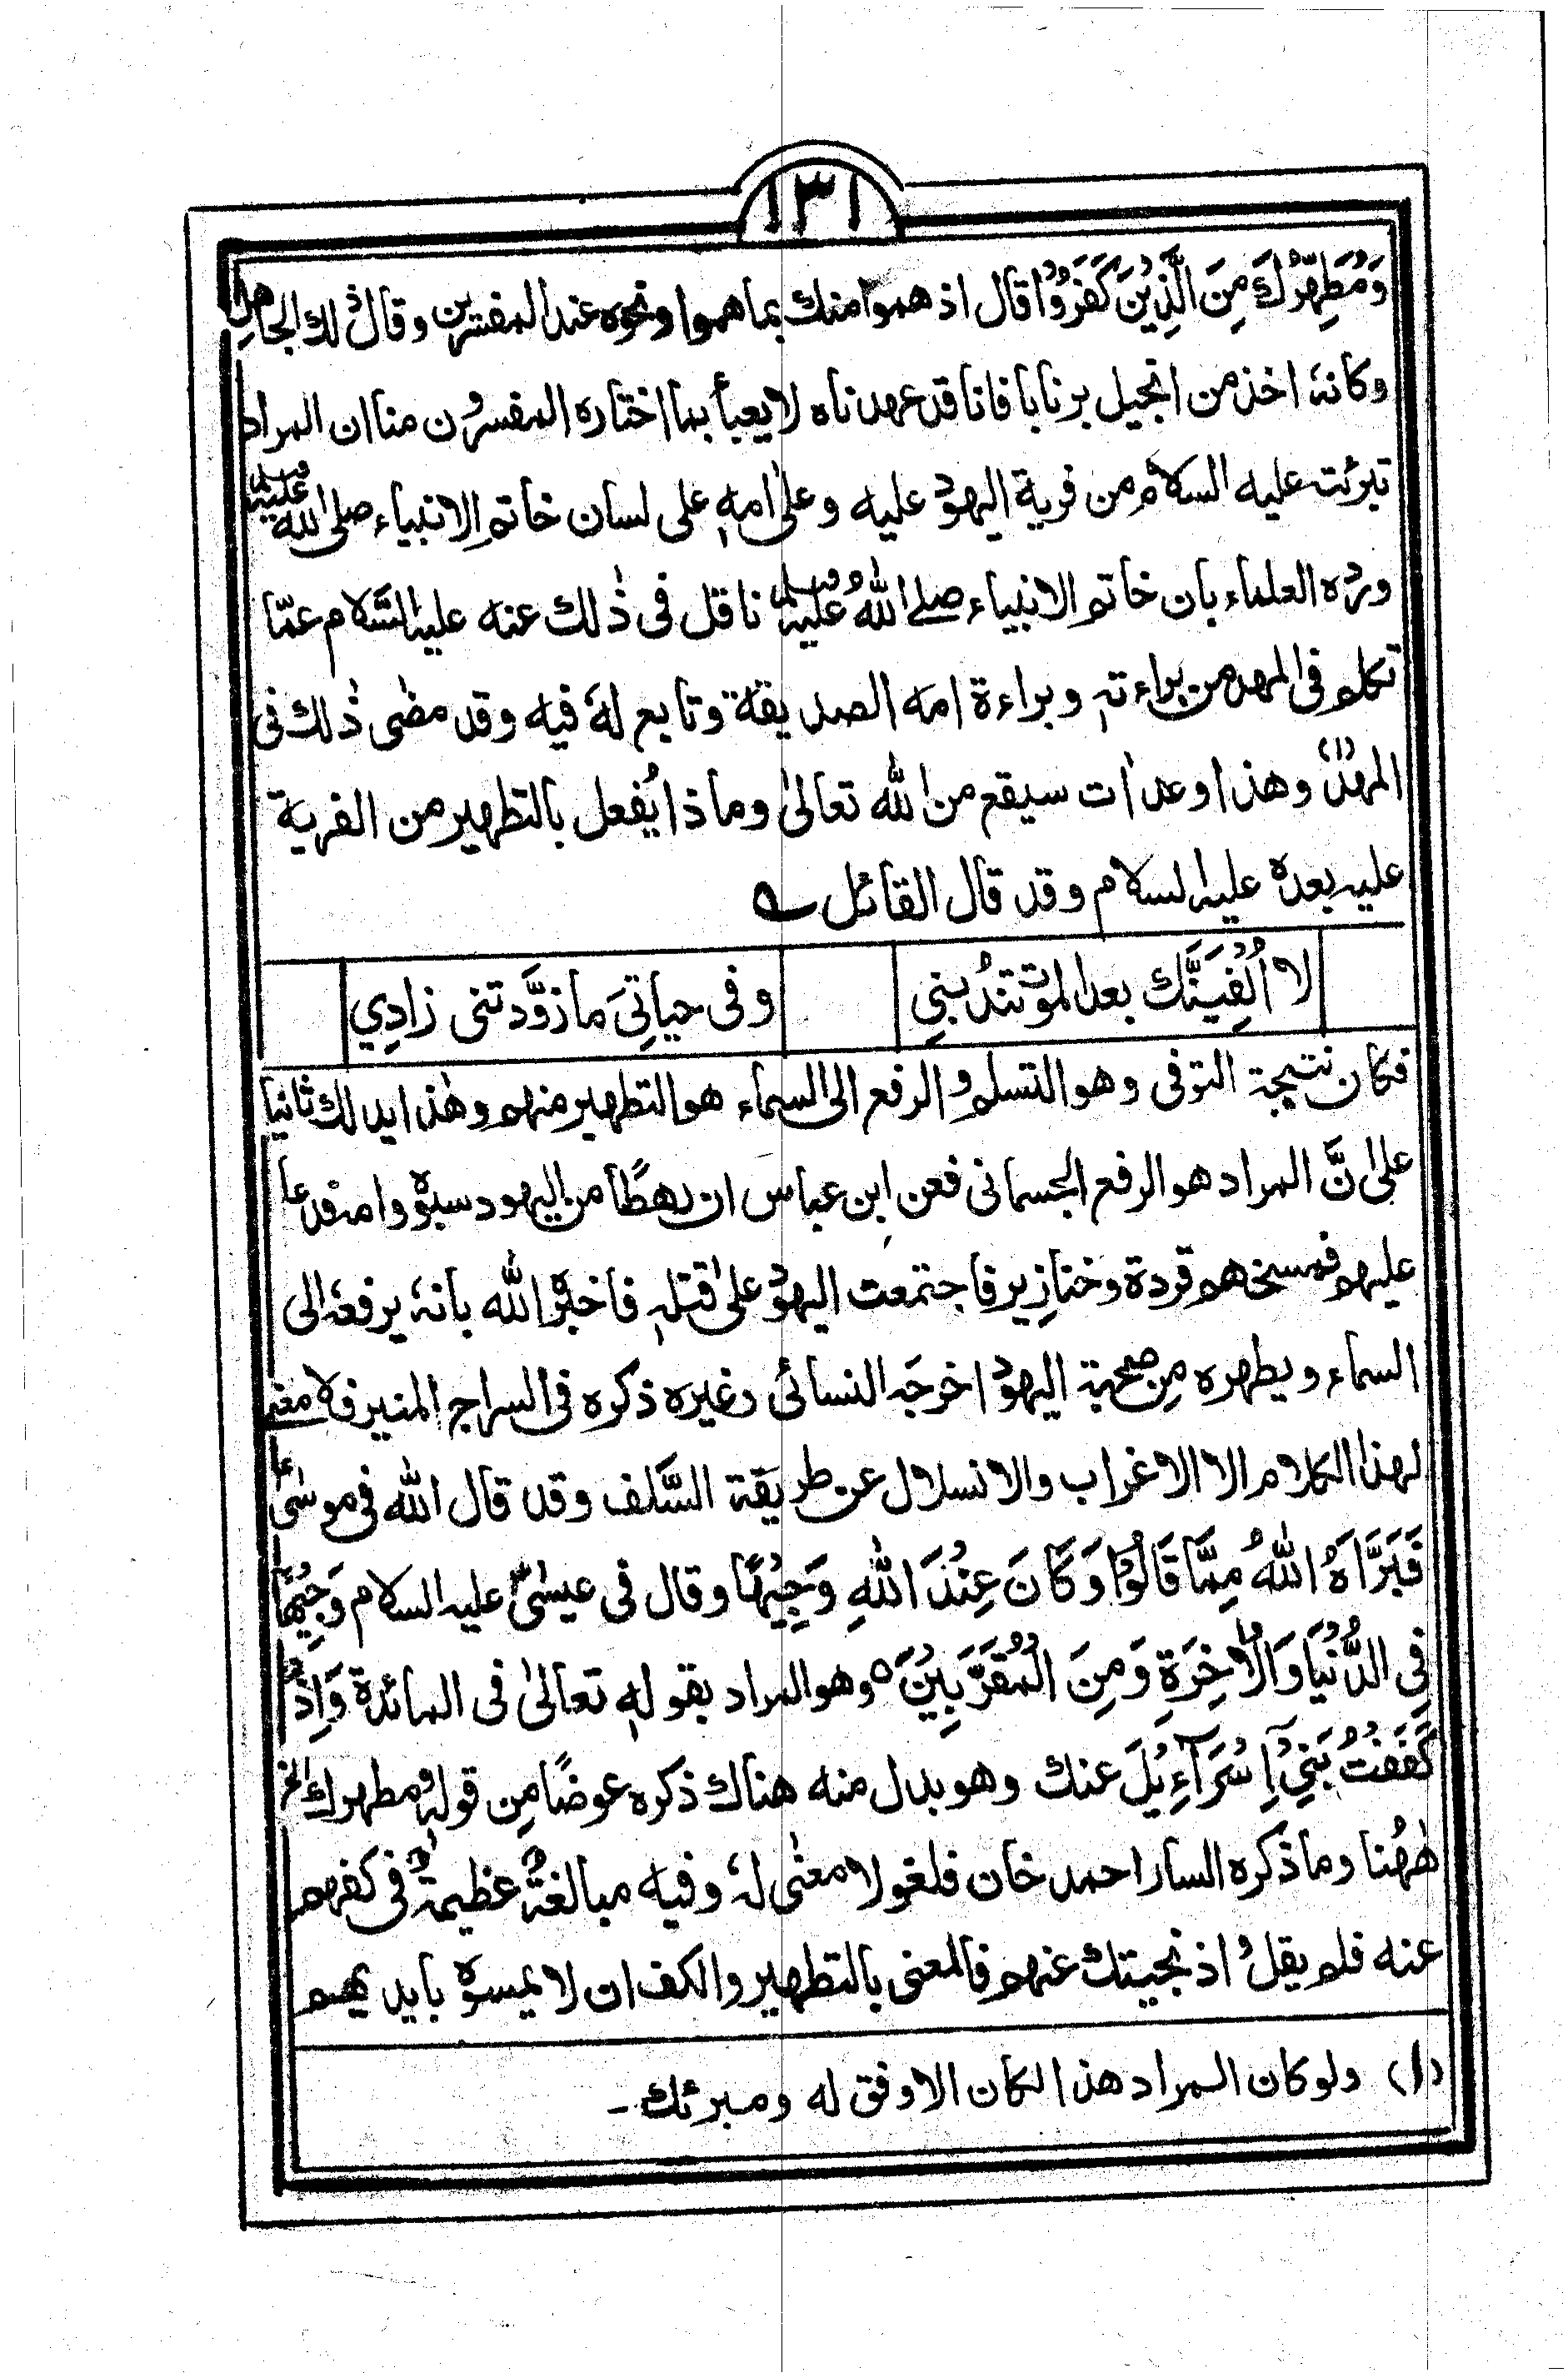 ١٣١
وَمُطَهِّرُكَ مِنَ الَّذِيْنَ كَفَرُوْا قال اذ هموا منك بما هموا ونحوه عند المفسرين وقال ذلك الجاهل
وكانهٗ اخذ من انجيل برنابا فانا قد عهدناه لا يعبأ بما اختاره المفسرون منا ان المراد
تبرئت عليه السلام من فرية اليهود عليه وعلٰى امهٖ على لسان خاتم الانبياء صلى الله عليه وسلم
ورده العلماء بان خاتم الانبياء صلى اللهُ عليه وسلم ناقل فى ذٰلك عنه عليه السَّلام عمّا
تكلم فى المهد من براءتهٖ وبراءة امه الصديقة وتابع لهٗ فيه وقد مضٰى ذٰلك فى
المهد (١) وهذا وعد اٰت سيقع من الله تعالىٰ وماذا يُفعل بالتطهير من الفرية
عليه بعده عليه السلام وقد قال القائل ؎
لا اُلْفِيَنَّك بعد الموت تَنْدُبُنِي
وفى حياتِيَ ما زوَّدتنى زادِي
فكان نتيجة التوفى وهو التسلم والرفع الى السماء هو التطهير منهم وهٰذا يدلك ثانيا
علىٰ انَّ المراد هو الرفع الجسمانى فعن ابن عباس ان رهطًا من اليهود سبوه وامه فدعا
عليهم فمسخهم قردة وخنازير فاجتمعت اليهود علىٰ قتلهٖ فاخبره الله بانهٗ يرفعهٗ الى
السماء ويطهره مِن صحبة اليهود اخرجَه النسائى وغيره ذكره فى السراج المنير فلا معنى
لهذا الكلام الا الاغراب والانسلال عن طريقة السَّلف وقد قال الله فى موسٰىؑ
فَبَرَّاَهُ اللهُ مِمَّا قَالُوْا وَكَانَ عِنْدَ اللهِ وَجِيْهًا وقال فى عيسٰى عليه السلام وَجِيْهًا
فِي الدُّنْيَا وَالْاٰخِرَةِ وَمِنَ الْمُقَرَّبِيْنَ ٥ وهو المراد بقولهٖ تعالىٰ فى المائدة وَاِذْ
كَفَفْتُ بَنِيْٓ اِسْرَآءِيْلَ عنك وهو بدل منه هناك ذكره عوضًا مِن قولهٖ ومطهرك الخ
هٰهُنا وما ذكره السار احمد خان فلغو لا معنٰى لهٗ وفيه مبالغةٌ عظيمةٌ فى كفهم
عنه فلم يقل و اذ نجيتك عنهم فالمعنى بالتطهير والكف ان لا يمسوه بايديهم
(١) ولو كان المراد هذا لكان الاوفق له ومبرئك ـ